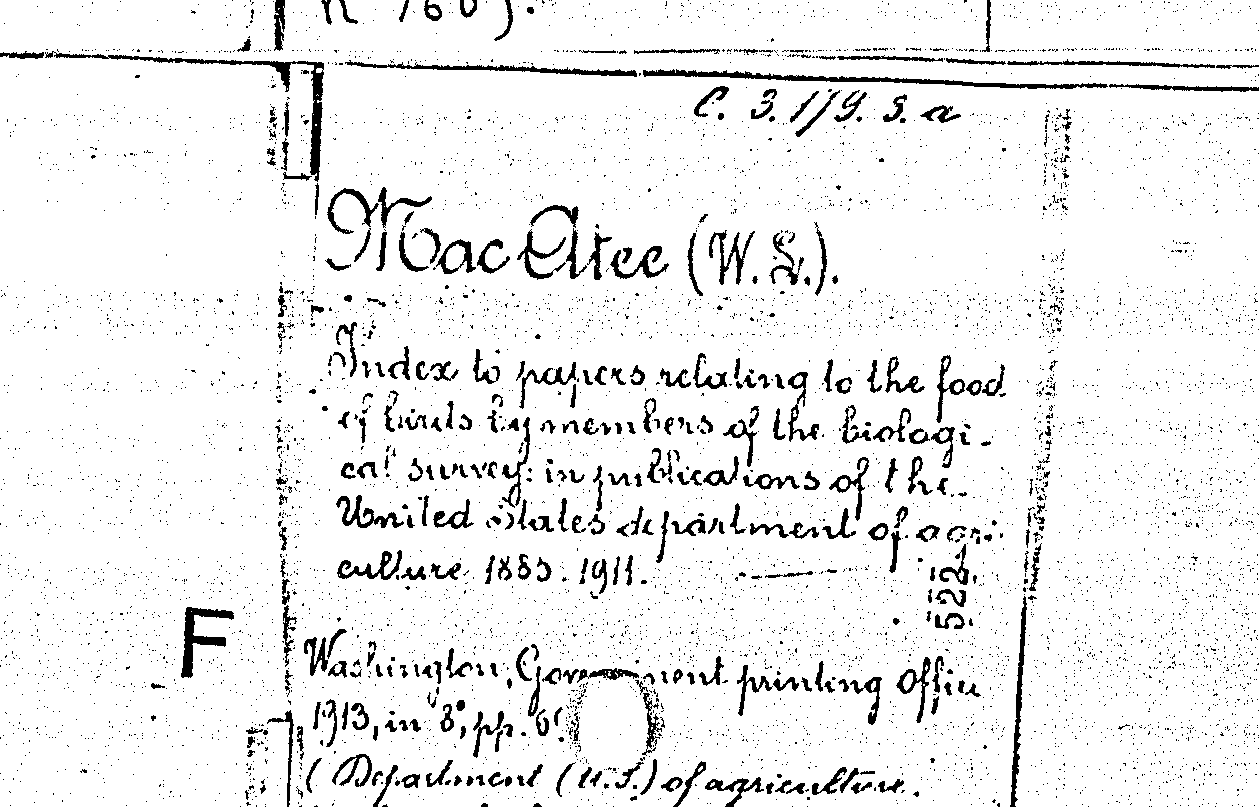 C. 3. 179. S. a
Mac Atee (W. L.).
Index to papers relating to the food
of birds by members of the biologi-
cal survey: in publications of the
United States department of agri-
culture 1883. 1911.
522
F
Washington, Government printing Office
1913, in 8°, pp.
(Department (U.S.) of agriculture.